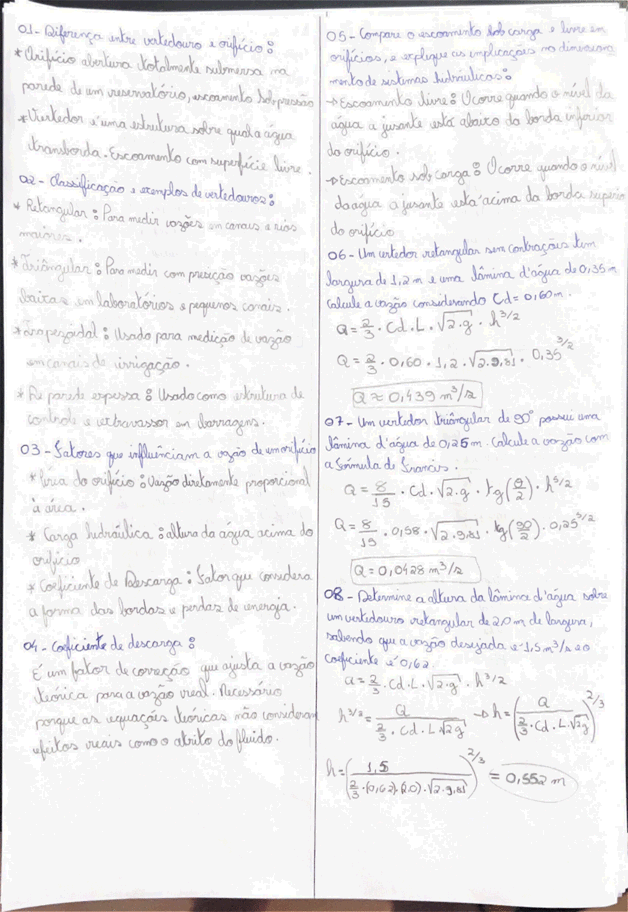 01- Diferença entre vertedouro e orifício:
* Orifício abertura totalmente submersa na
parede de um reservatório, escoamento sob pressão
* Vertedor é uma estrutura sobre qual a água
transborda. Escoamento com superfície livre.
02- Classificação e exemplos de vertedouros:
* Retangular: Para medir vazões em canais e rios
maiores.
* Triângular: Para medir com precição vazões
baixas em laboratórios e pequenos canais.
* Trapezoidal: Usado para medição de vazão
em canais de irrigação.
* De parede espessa: Usado como estrutura de
controle e extravassor em barragens.
03- Fatores que influênciam a vazão de um orifício
* Área do orifício: Vazão diretamente proporcional
à área.
* Carga hidráulica: altura da água acima do
orifício
* Coeficiente de Descarga: Fator que considera
a forma das bordas e perdas de energia.
04- Coeficiente de descarga:
É um fator de correção que ajusta a vazão
teórica para a vazão real. Necessário
porque as equações teóricas não consideram
efeitos reais como o atrito do fluido.
05- Compare o escoamento sob carga e livre em
orifícios, e explique as implicações no dimensiona
mento de sistemas hidráulicos:
→ Escoamento livre: Ocorre quando o nível da
água a jusante está abaixo da borda inferior
do orifício.
→ Escoamento sob carga: Ocorre quando o nível
da água a jusante está acima da borda superior
do orifício
06- Um vertedor retangular sem contrações tem
largura de 1,2 m e uma lâmina d'água de 0,35m
Calcule a vazão considerando Cd= 0,60m.
Q = 2/3 · Cd · L · √2·g · h^3/2
Q = 2/3 · 0,60 · 1,2 · √2·9,81 · 0,35^3/2
Q ≈ 0,439 m³/s
07- Um vertedor triângular de 90° possui uma
lâmina d'água de 0,25m. Calcule a vazão com
a fórmula de Francis.
Q = 8/15 · Cd · √2·g · tg(θ/2) · h^5/2
Q = 8/15 · 0,58 · √2·9,81 · tg(90/2) · 0,25^5/2
Q = 0,0428 m³/s
08- Determine a altura da lâmina d'água sobre
um vertedouro retangular de 2.0m de largura,
sabendo que a vazão desejada é 1,5m³/s e o
coeficiente é 0,62.
Q = 2/3 · Cd · L · √2·g · h^3/2
h^3/2 = Q / (2/3 · Cd · L √2g) → h = (Q / (2/3 · Cd · L · √2g))^2/3
h = (1,5 / (2/3 · (0,62) · (2.0) · √2·9,81))^2/3 = 0,552 m